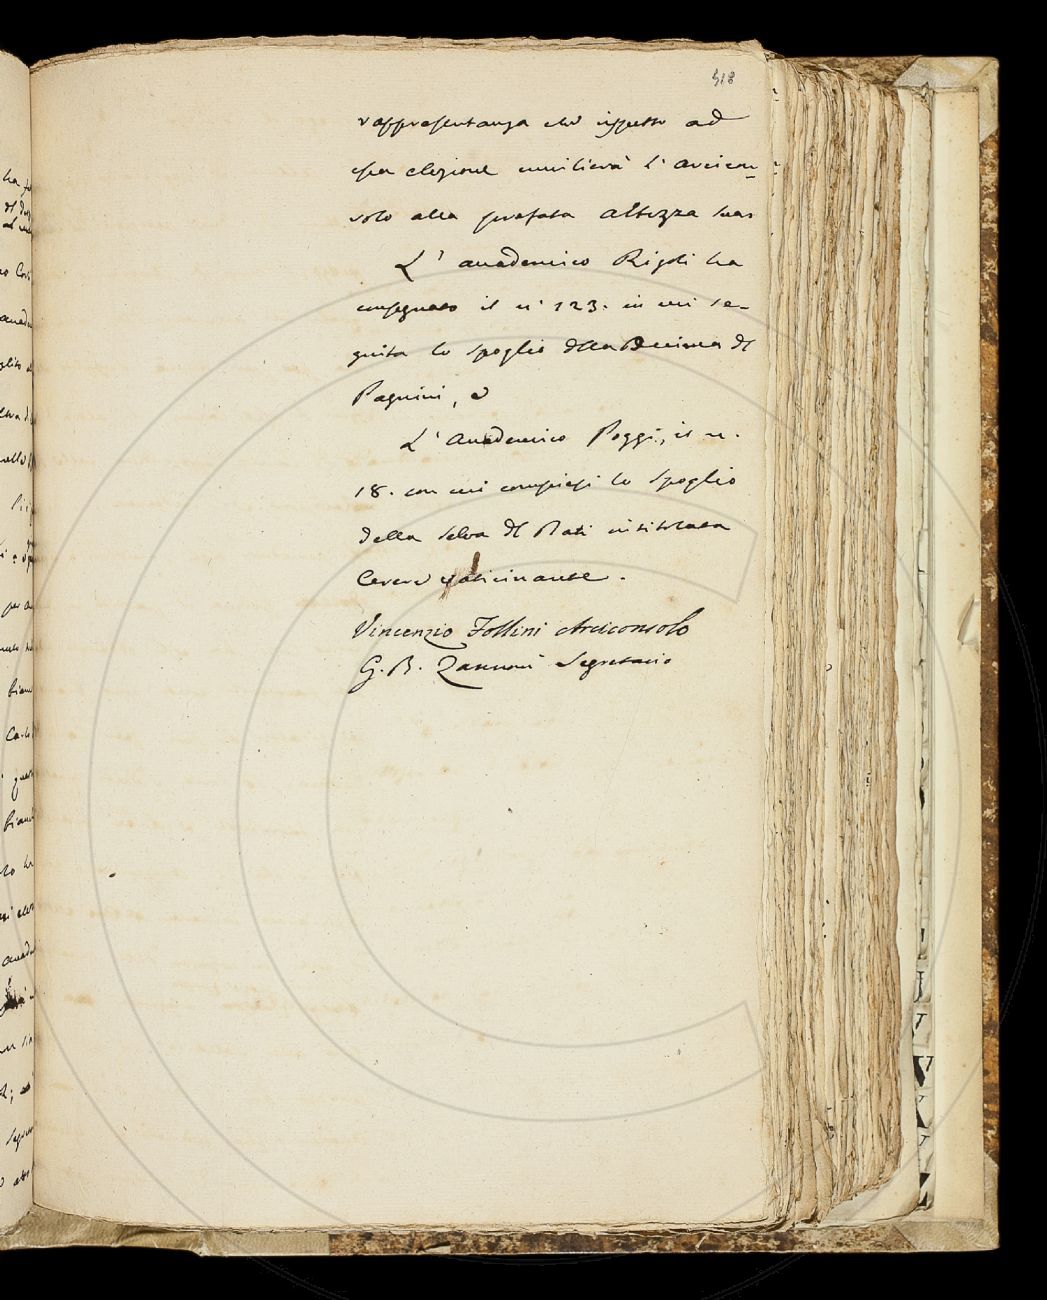 418
rappresentanza che rispetto ad
essa elezione umilierà l'Arcicon=
solo alla prefata Altezza sua.
L'Accademico Rigoli ha
consegnato il n° 123. in cui se-
guita lo spoglio della Decima del
Pagnini, e
L'Accademico Poggi, il n.
18. con cui compiesi lo spoglio
della selva di Pati intitolata
Cerere vaticinante.
Vincenzio Follini Arciconsolo
G. B. Zannoni Segretario